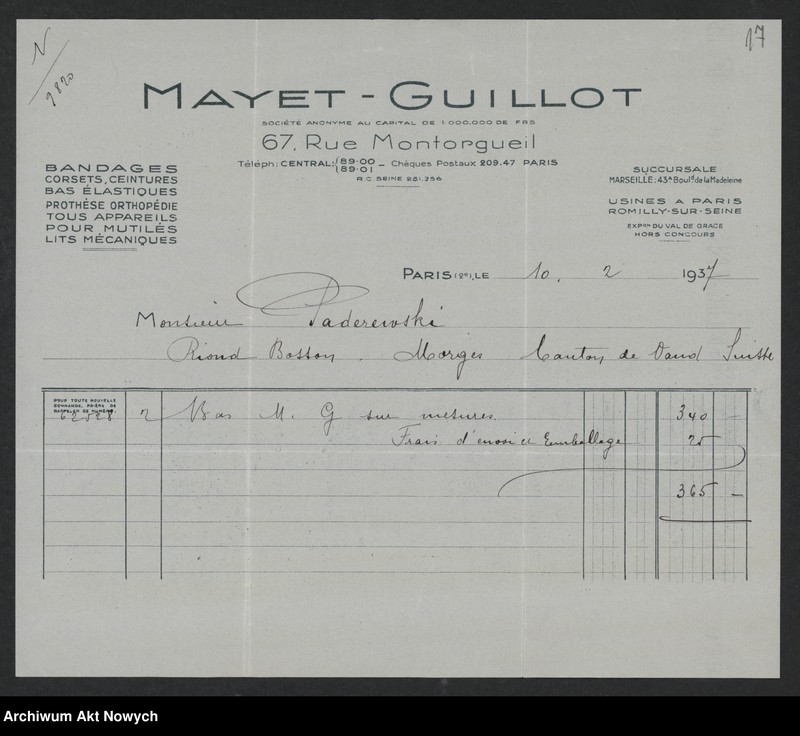 N
9820
17
MAYET-GUILLOT
SOCIÉTÉ ANONYME AU CAPITAL DE 1.000.000 DE FRS
67, Rue Montorgueil
Téléph: CENTRAL: 89-00 89-01 - Chèques Postaux 209.47 PARIS
R.C. SEINE 251.256
BANDAGES
CORSETS, CEINTURES
BAS ÉLASTIQUES
PROTHÈSE ORTHOPÉDIE
TOUS APPAREILS
POUR MUTILÉS
LITS MÉCANIQUES
SUCCURSALE
MARSEILLE: 43A Boul.d de la Madeleine
USINES A PARIS
ROMILLY-SUR-SEINE
EXPON DU VAL DE GRACE
HORS CONCOURS
PARIS (2e), LE 10. 2 1937
Monsieur Paderewski
Riond Bosson. Morges Canton de Vaud Suisse
POUR TOUTE NOUVELLE
COMMANDE, PRIÈRE DE
RAPPELER CE NUMÉRO.
62528 2 Bas M. G sur mesures 340 -
Frais d'envoi et Emballage 25
365 -
Archiwum Akt Nowych